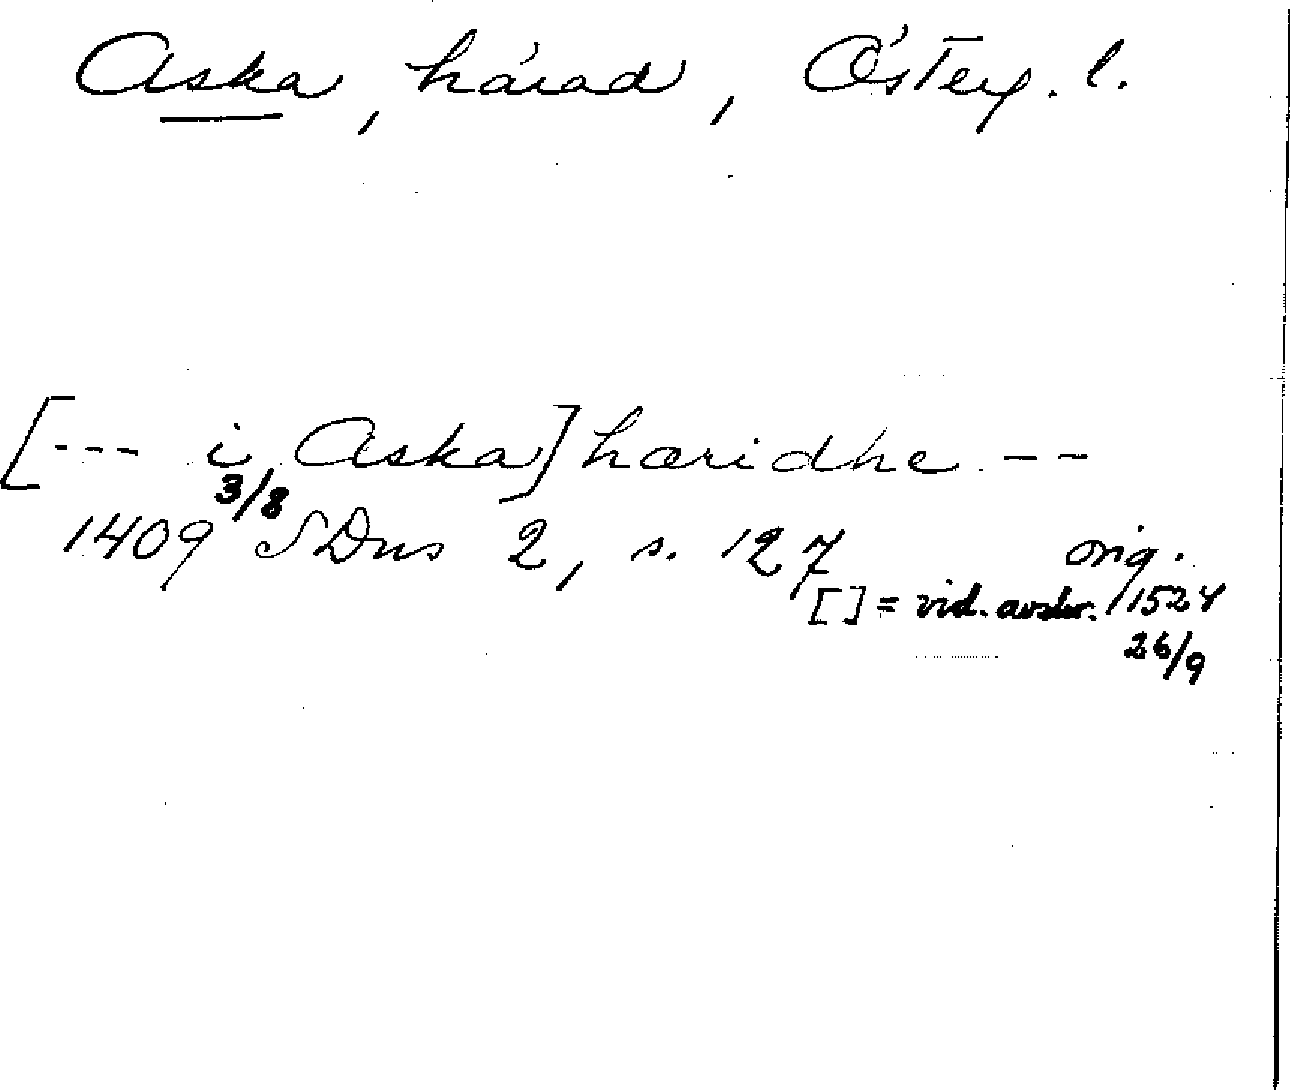 Aska, härad, Österg. l.
[--- i Aska] hæridhe --
1409 3/8 SDns 2, s. 127 orig.
[ ] = vid. avskr. 1524
26/9